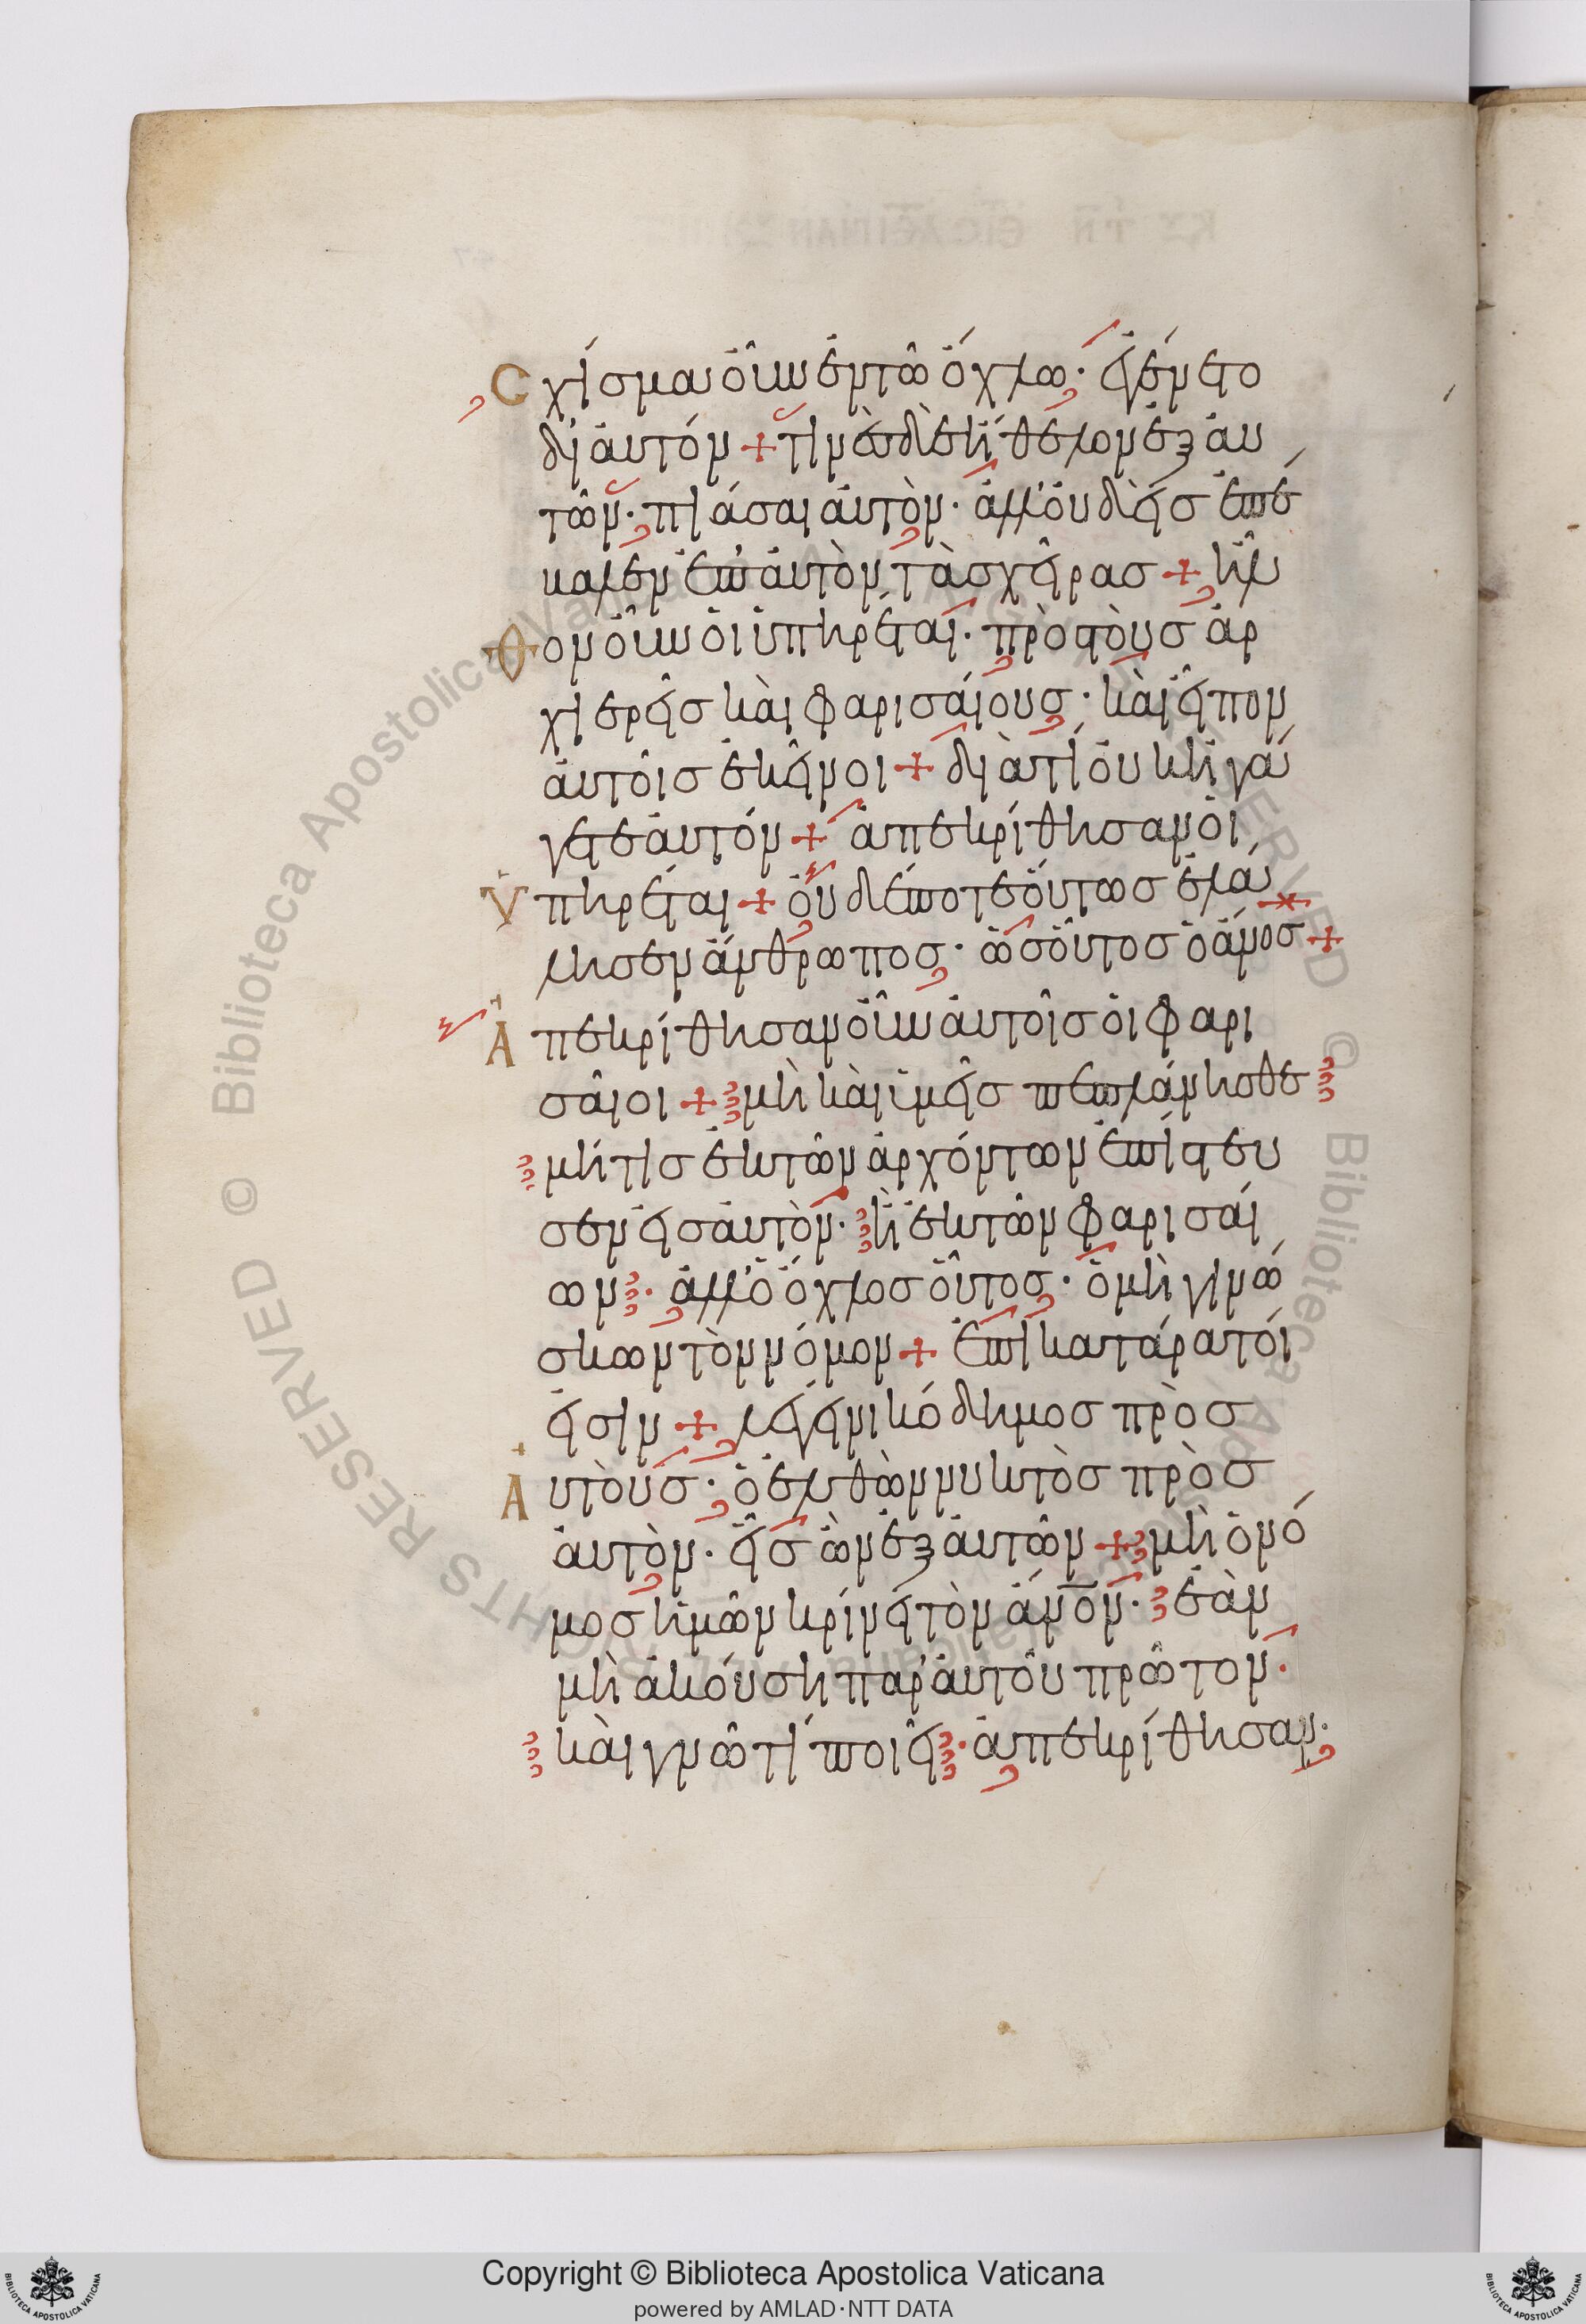 Σχίσμα οὖν ἐν τῶ ὄχλω· ἐγένετο
δι αὐτόν + τινὲς δὲ ἤθελον ἐξ αυ
τῶν· πιάσαι αὐτὸν· ἀλλ' οὐδεὶς ἐπέ
βαλεν ἐπ' αὐτὸν τὰς χεῖρας + ἦλ
θον οὖν οἱ ὑπηρέται· πρὸς τοὺς ἀρ
χιερεῖς καὶ φαρισαίους· καὶ εἶπον
αὐτοῖς ἐκεῖνοι + διατί οὐκ ἠγά
γετε αὐτόν + ἀπεκρίθησαν οἱ
ὑπηρέται + οὐδέποτε οὕτως ἐλά
λησεν ἄνθρωπος· ὡς οὗτος ὁ ἄνος +
Ἀπεκρίθησαν οὖν αὐτοῖς οἱ φαρι
σαῖοι + μὴ καὶ ὑμεῖς πεπλάνησθε
μή τις ἐκ τῶν ἀρχόντων ἐπίστευ
σεν εἰς αὐτὸν· ἢ ἐκ τῶν φαρισαί
ων· ἀλλ' ὁ ὄχλος οὗτος· ὁ μὴ γινώ
σκων τὸν νόμον + ἐπικατάρατοί
εἰσιν + λέγει νικόδημος πρὸς
Αὐτοὺς· ὁ ἐλθὼν νυκτὸς πρὸς
αὐτὸν· εἷς ὢν ἐξ αὐτῶν + μὴ ὁ νό
μος ἡμῶν κρίνει τὸν ἄνον· ἐὰν
μὴ ἀκούση παρ' αὐτοῦ πρῶτον·
καὶ γνῶ τί ποιεῖ· ἀπεκρίθησαν·
Copyright © Biblioteca Apostolica Vaticana
powered by AMLAD·NTT DATA